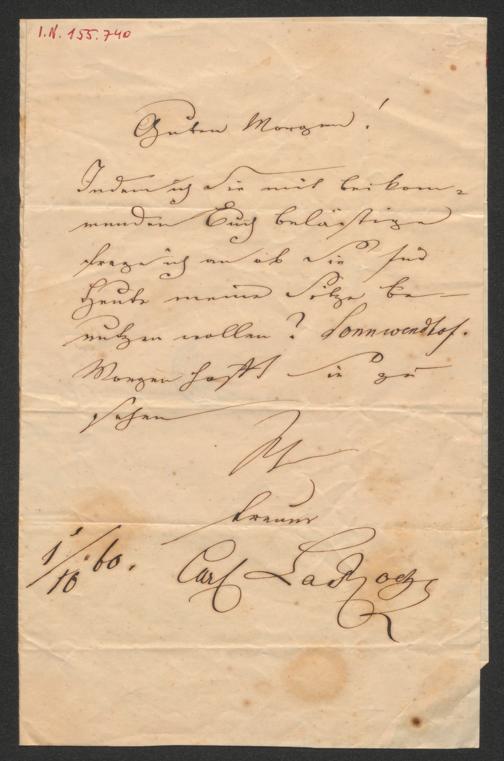 I.N. 155.740
Guten Morgen!
Indem ich Sie mit beikom-
menden Buch belästige
frage ich an ob Sie für
Heute meine Sitze be-
nutzen wollen? Sonnwendhof.
Morgen hofft Sie zu
sehen
Ihr
treuer
1/10 60.
Carl LaRoche